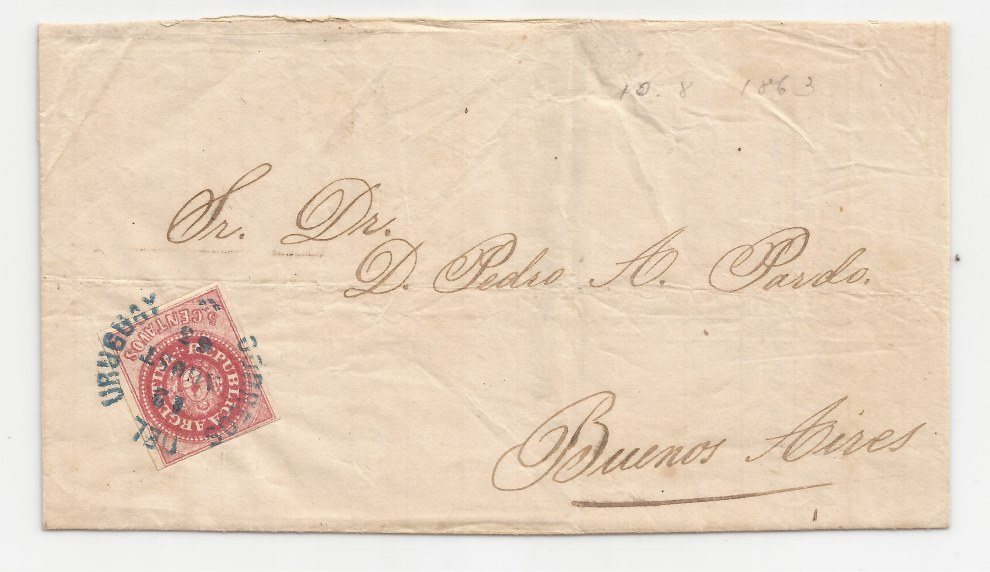 10. 8 1863
Sr. Dr.
D. Pedro A. Pardo.
Buenos Aires
5 CENTAVOS
REPUBLICA ARGENTINA
DEL URUGUAY